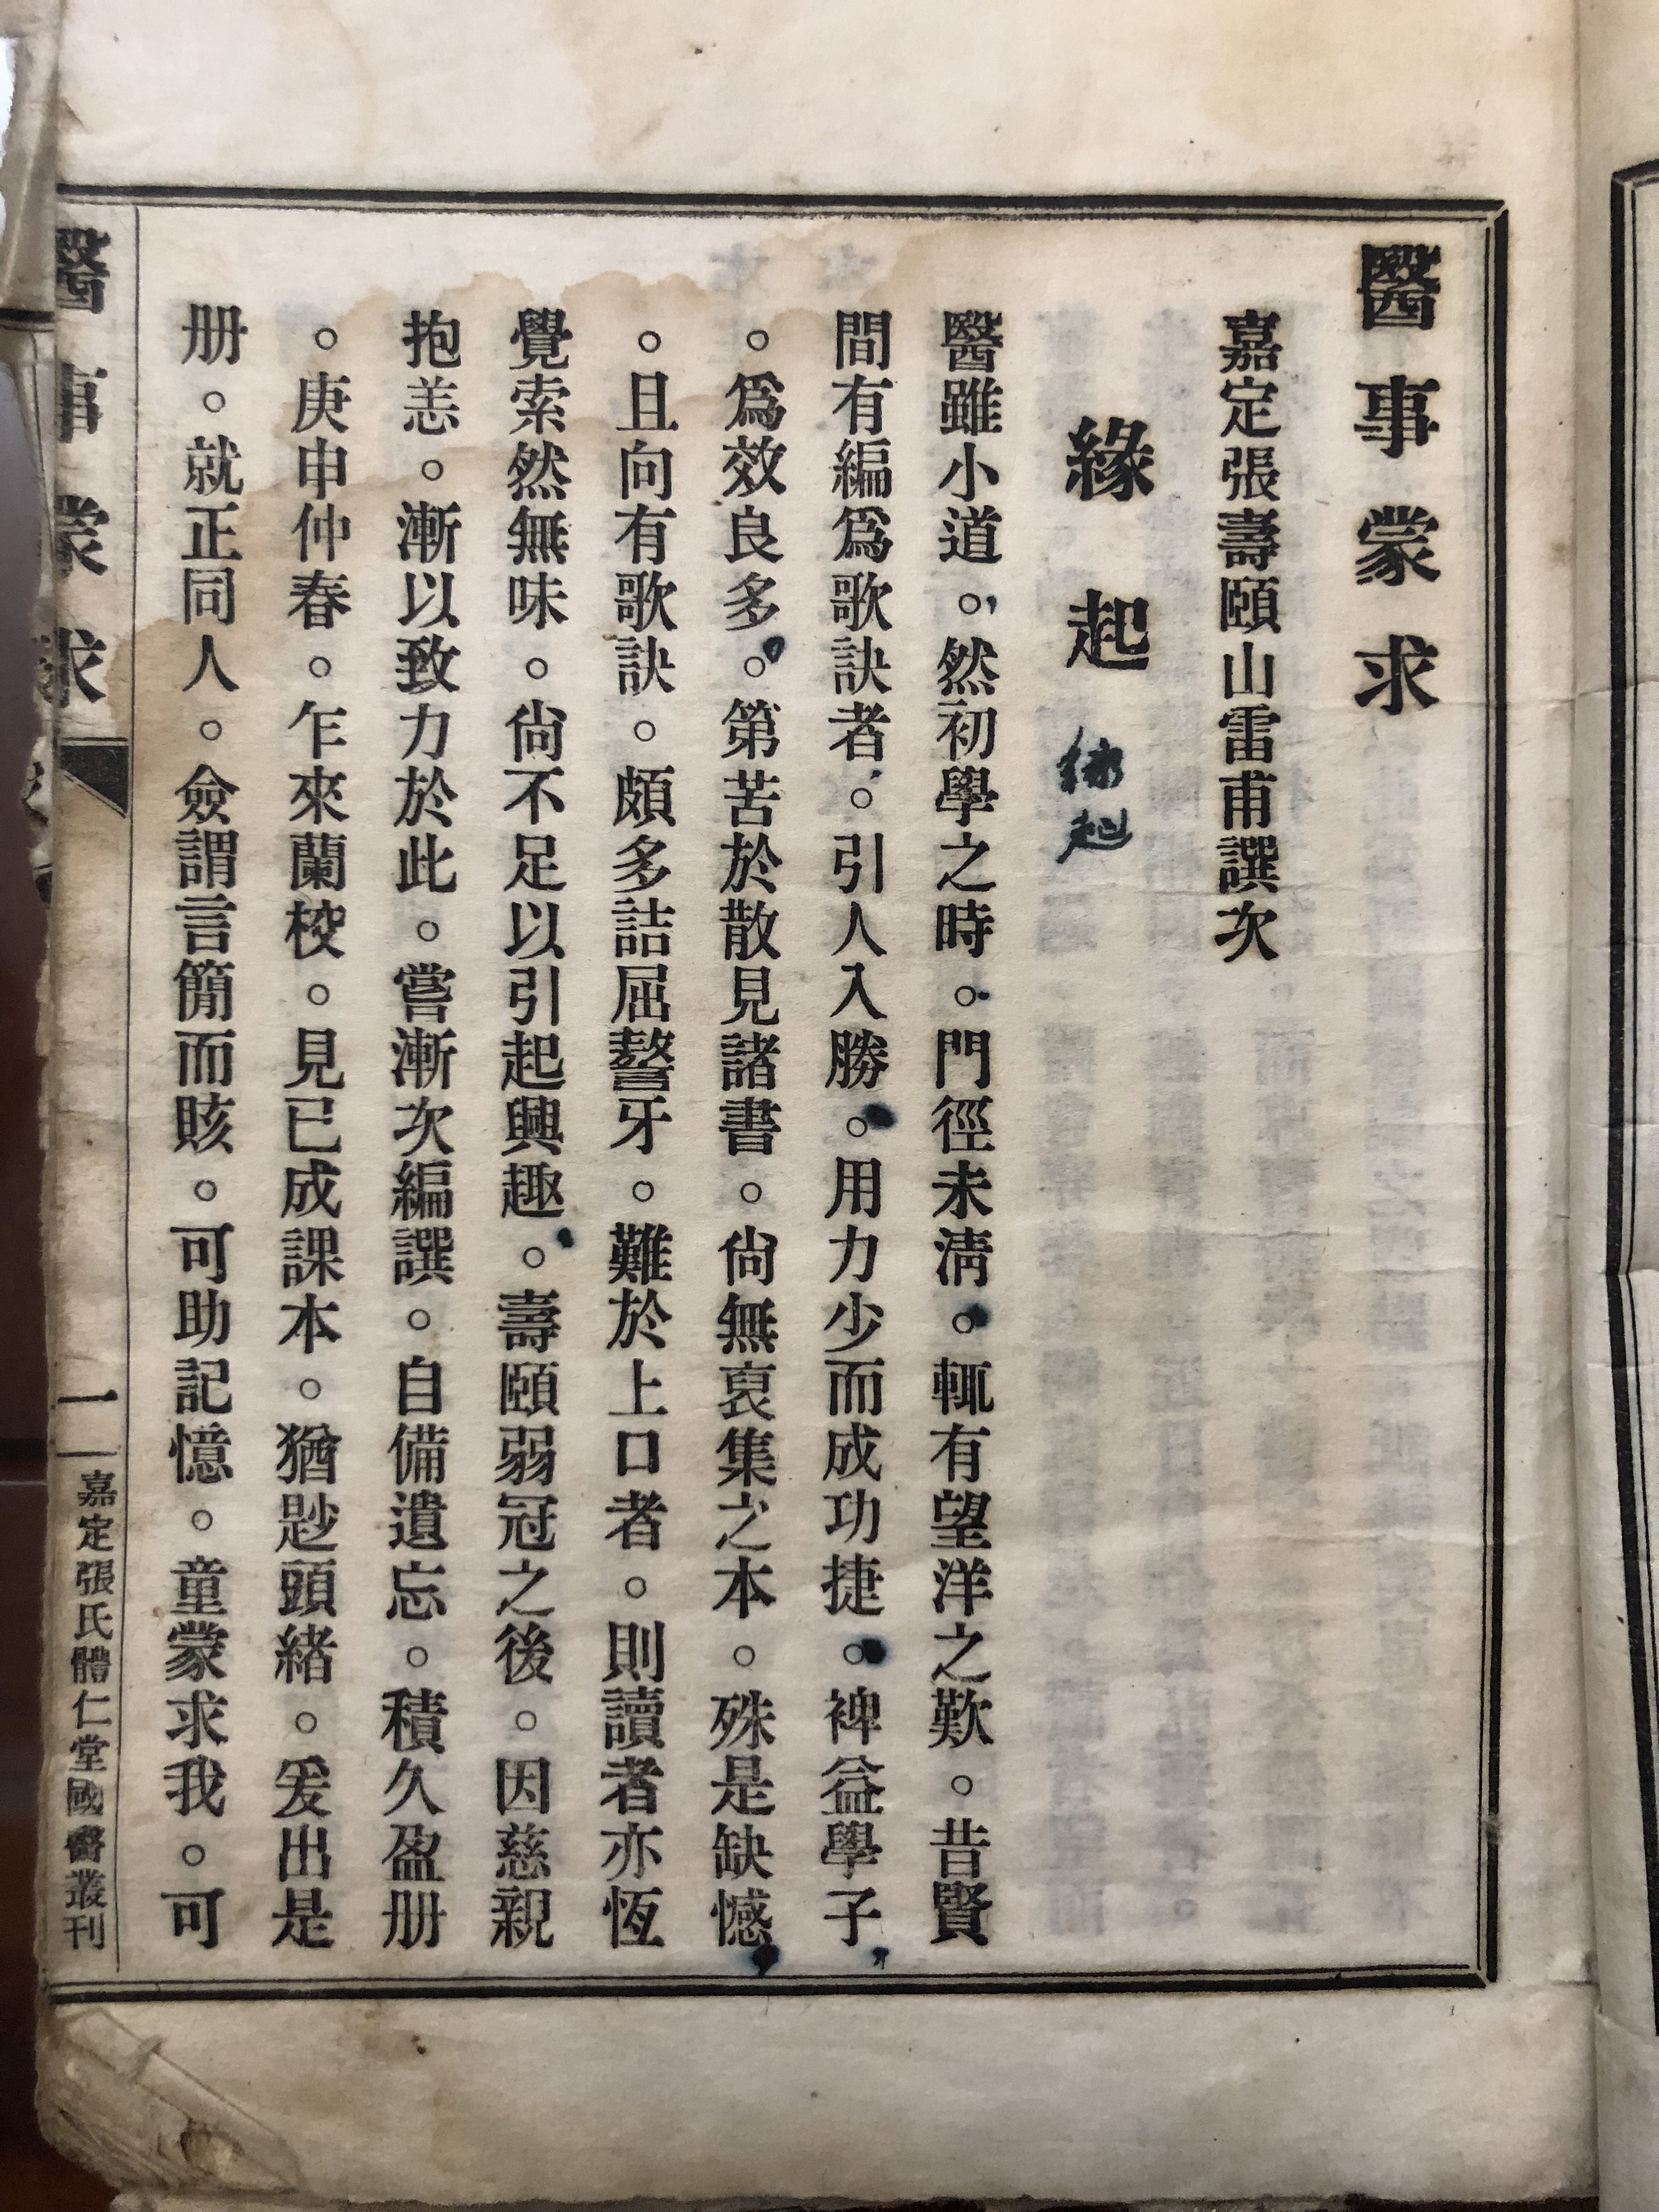 醫事蒙求
嘉定張壽頤山雷甫譔次
緣起
緣起
醫雖小道。然初學之時。門徑未淸。輒有望洋之歎。昔賢
間有編爲歌訣者。引人入勝。用力少而成功捷。裨益學子
。爲效良多。第苦於散見諸書。尙無裒集之本。殊是缺憾
。且向有歌訣。頗多詰屈謷牙。難於上口者。則讀者亦恆
覺索然無味。尙不足以引起興趣。壽頤弱冠之後。因慈親
抱恙。漸以致力於此。嘗漸次編譔。自備遺忘。積久盈册
。庚申仲春。乍來蘭校。見已成課本。猶尟頭緒。爰出是
册。就正同人。僉謂言簡而賅。可助記憶。童蒙求我。可
醫事蒙求
一
嘉定張氏體仁堂國醫叢刊